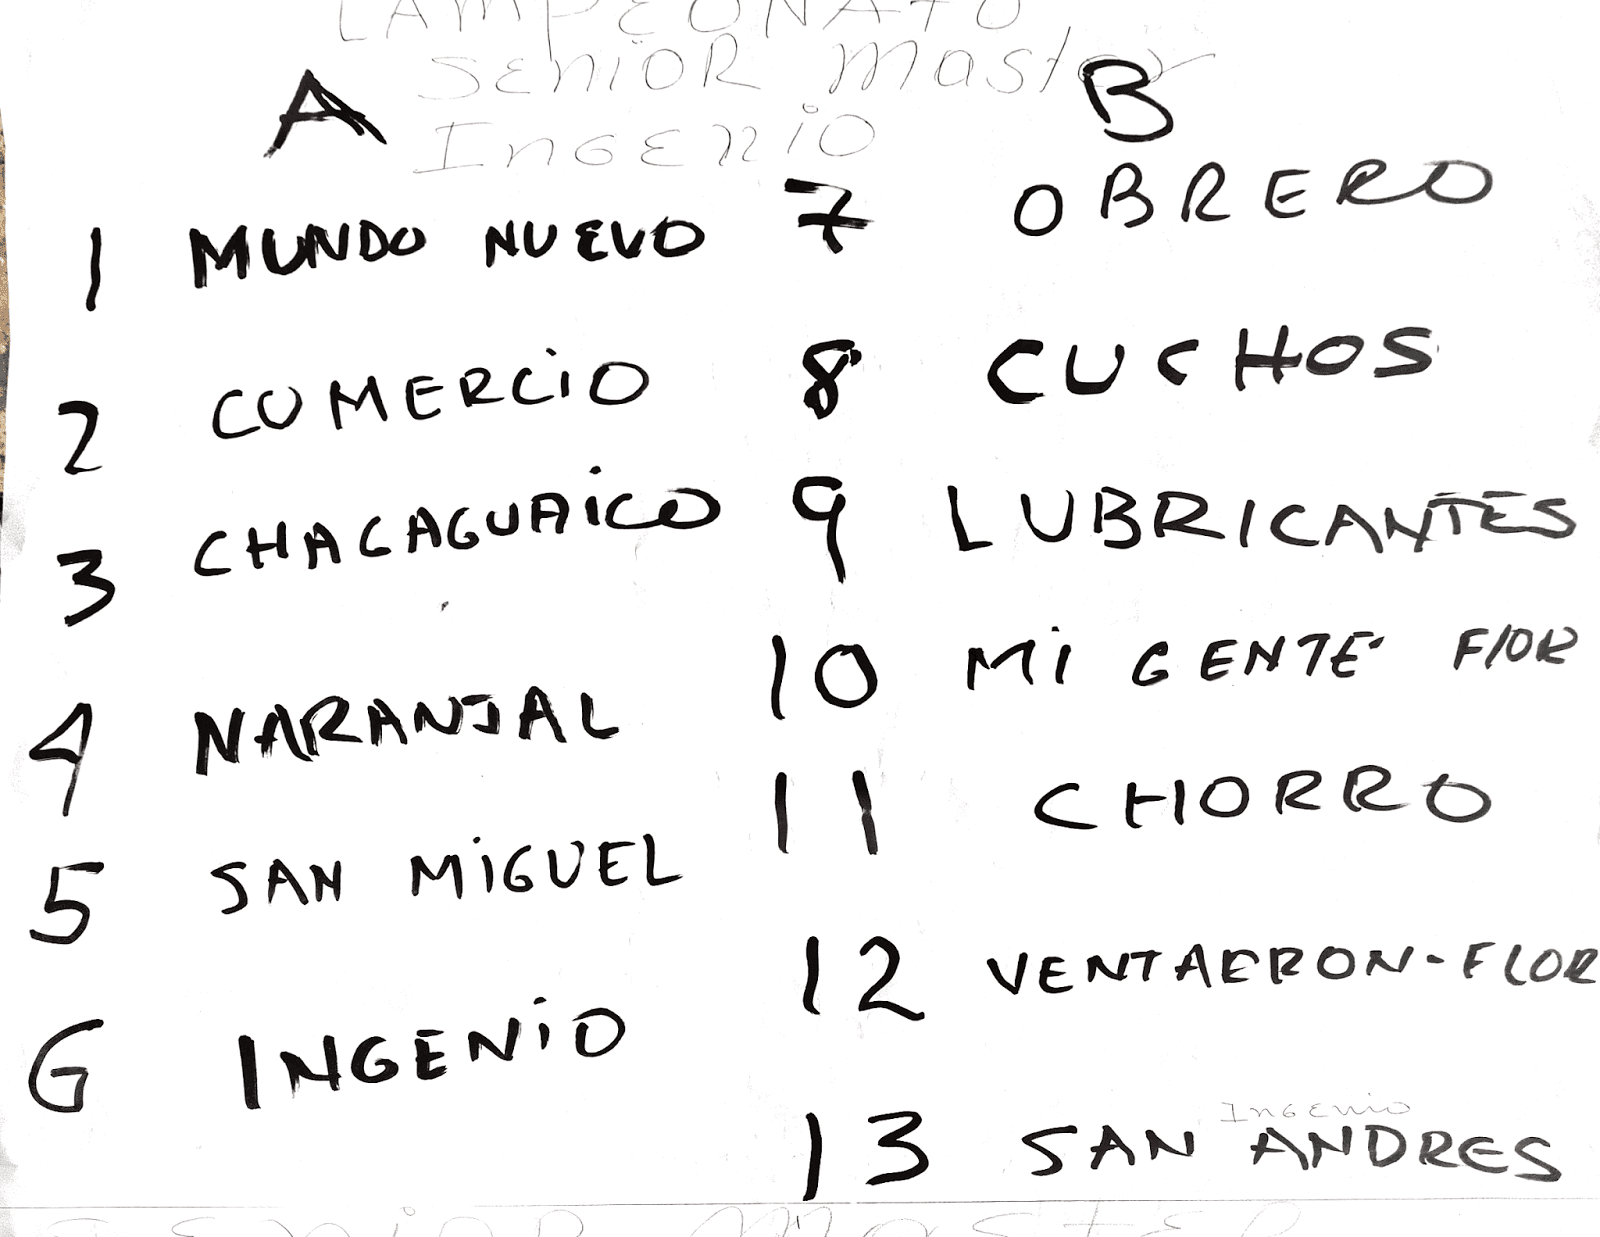 CAMPEONATO
SENIOR Master
INGENIO
A
1 MUNDO NUEVO
2 COMERCIO
3 CHACAGUAICO
4 NARANJAL
5 SAN MIGUEL
6 INGENIO
B
7 OBRERO
8 CUCHOS
9 LUBRICANTES
10 Mi GENTE FlOR
11 CHORRO
12 VENTARRON-FLOR
Ingenio
13 SAN ANDRES
SENIOR MASTER